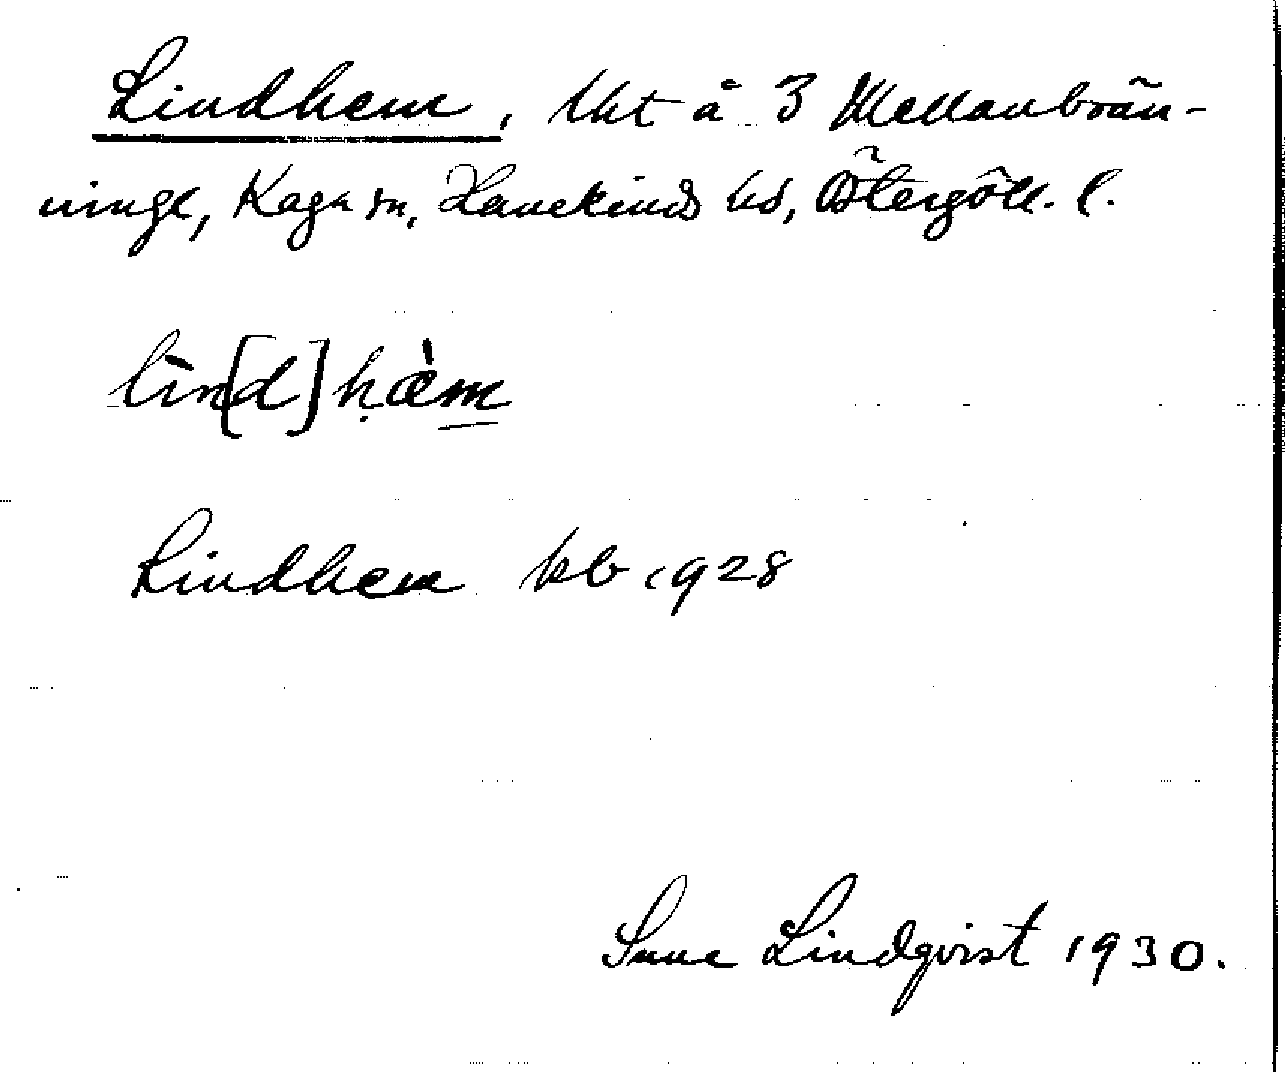 Lindhem, lht å 3 Mellanbrän-
ninge, Kaga sn, Hanekinds hd, Östergötl. l.
lìn[d]hæ̀m
Lindhem kb 1928
Sune Lindqvist 1930.